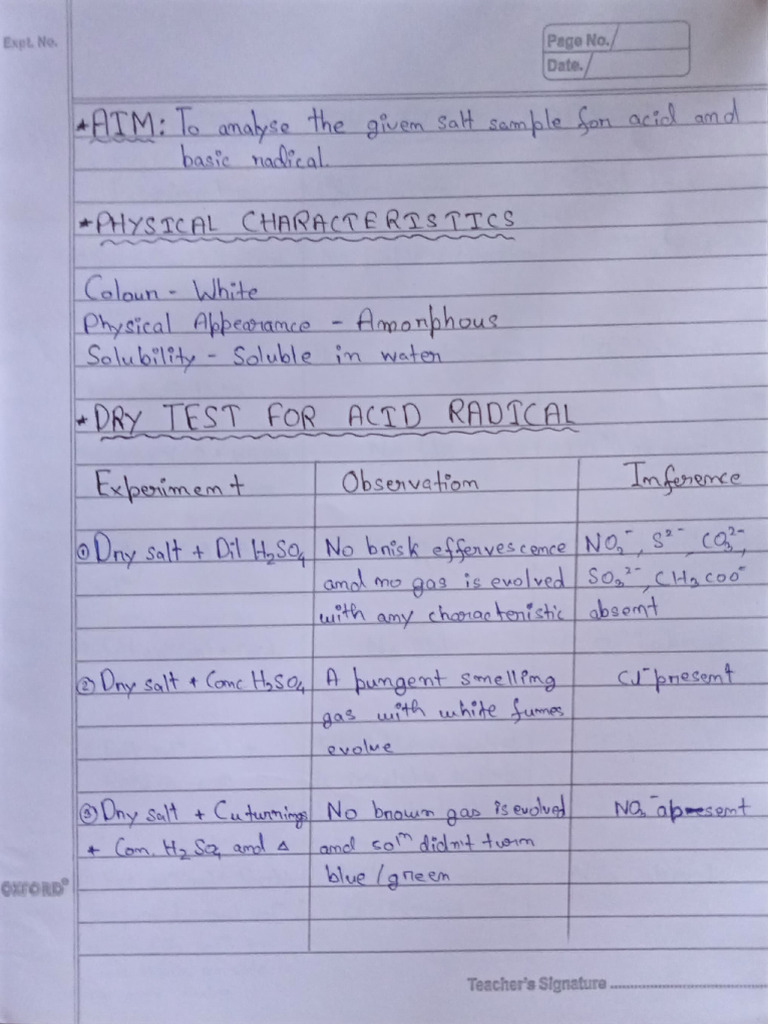 Expt. No.
Page No.
Date.
*AIM: To analyse the given salt sample for acid and
basic radical.
*PHYSICAL CHARACTERISTICS
Colour - White
Physical Appearance - Amorphous
Solubility - Soluble in water
*DRY TEST FOR ACID RADICAL
Experiment Observation Inference
① Dry salt + Dil H₂SO₄ No brisk effervescence NO₂⁻, S²⁻, CO₃²⁻,
and no gas is evolved SO₃²⁻, CH₃COO⁻
with any characteristic absent
② Dry salt + Conc H₂SO₄ A pungent smelling Cl⁻ present
gas with white fumes
evolve
③ Dry salt + Cu turnings No brown gas is evolved NO₃⁻ absent
+ Con. H₂SO₄ and Δ and solⁿ didn't turn
blue/green
OXFORD®
Teacher's Signature